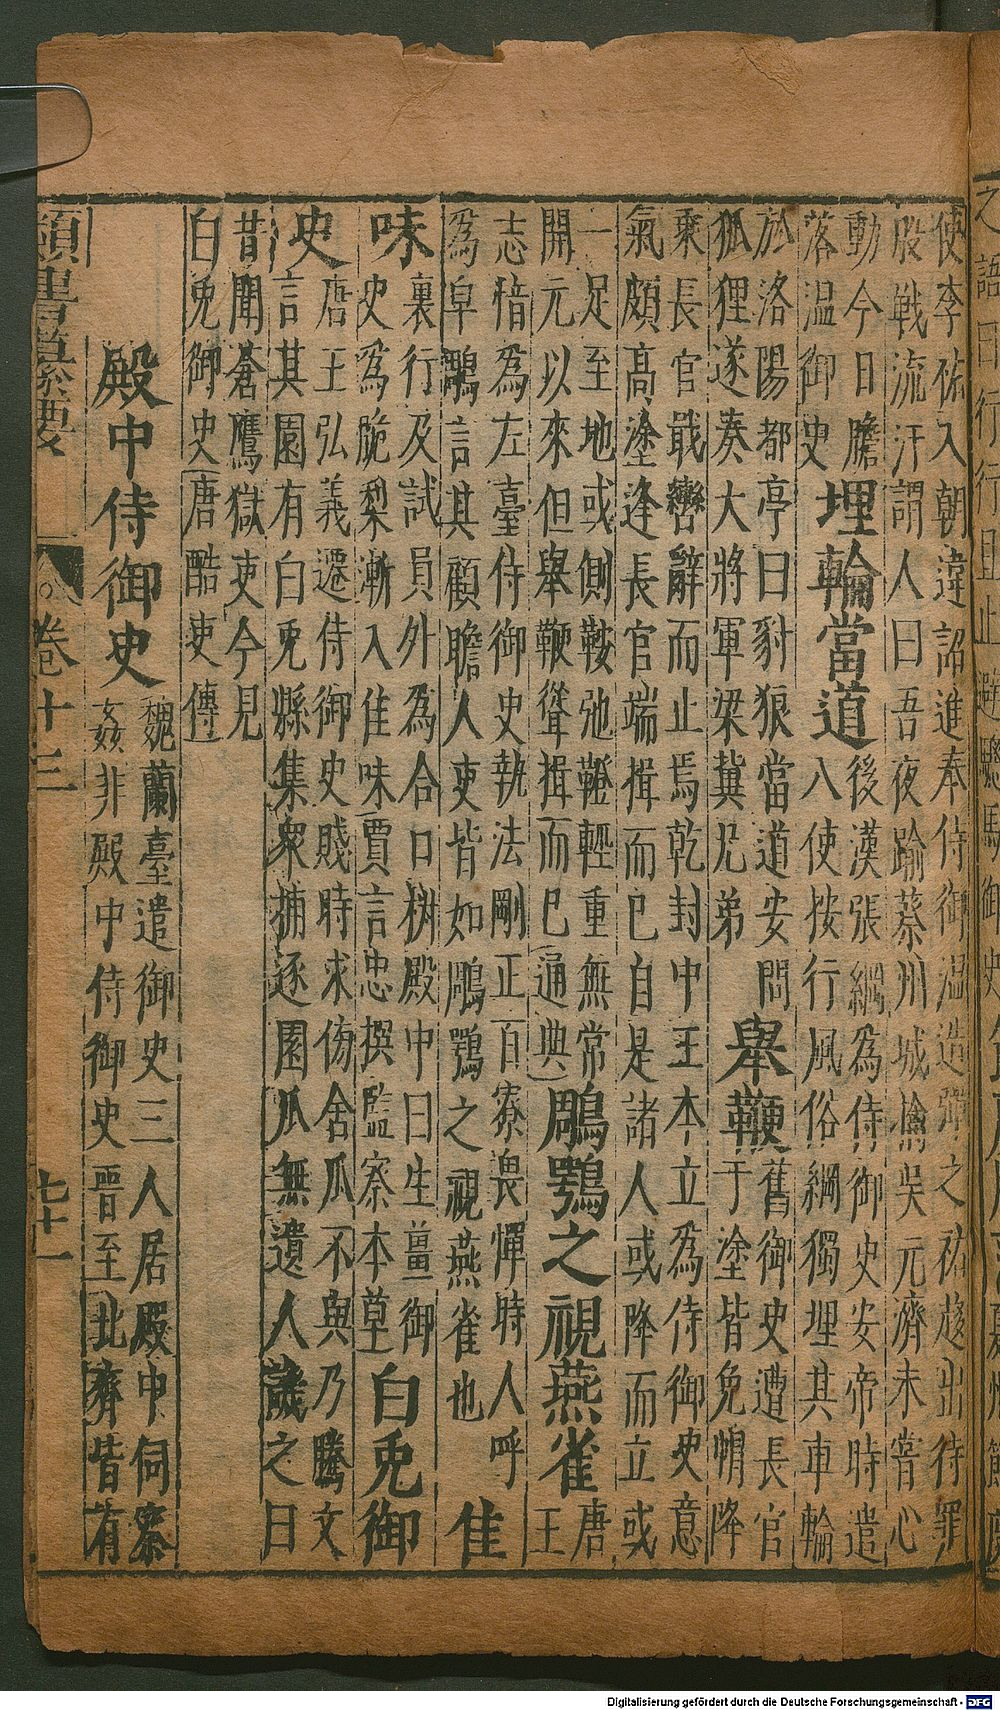 使李𥙷入朝違詔進奉侍御温造彈之祐趍出待罪
股戦流汗謂人曰吾夜踰蔡州城擒吳元濟未甞心
動今日膽
落温御史
埋輪當道
後漢張綱為侍御史安帝時遣
八使按行風俗綱獨埋其車輪
於洛陽都亭曰豺狼當道安問
狐狸遂奏大將軍梁冀兄弟
舉鞭
舊御史遭長官
于塗皆免帽降
乘長官戢轡辭而止焉乾封中王本立為侍御史意
氣頗高塗逢長官端揖而已自是諸人或降而立或
一足至地或側鞍弛鞚輕重無常
開元以來但舉鞭聳揖而已(通典)
鵰鶚之視燕雀
唐
王
志愔為左臺侍御史執法剛正百寮畏憚時人呼
為皁鵰言其顧瞻人吏皆如鵰鶚之視燕雀也
佳
味
裏行及試員外為合口椒殿中曰生薑御
史為脆梨漸入佳味賈言忠撰監察本草
白兎御
史
唐王弘義遷侍御史賤時求傍舍瓜不與乃騰文
言其園有白兎縣集衆捕逐園瓜無遺人譏之曰
昔聞蒼鷹獄吏今見
白兎御史(唐酷吏傳)
殿中侍御史
魏蘭臺遣御史三人居殿中伺察
姦非殿中侍御史晋至北齊皆有
類書纂要
八 卷十三
七十一
Digitalisierung gefördert durch die Deutsche Forschungsgemeinschaft - DFG